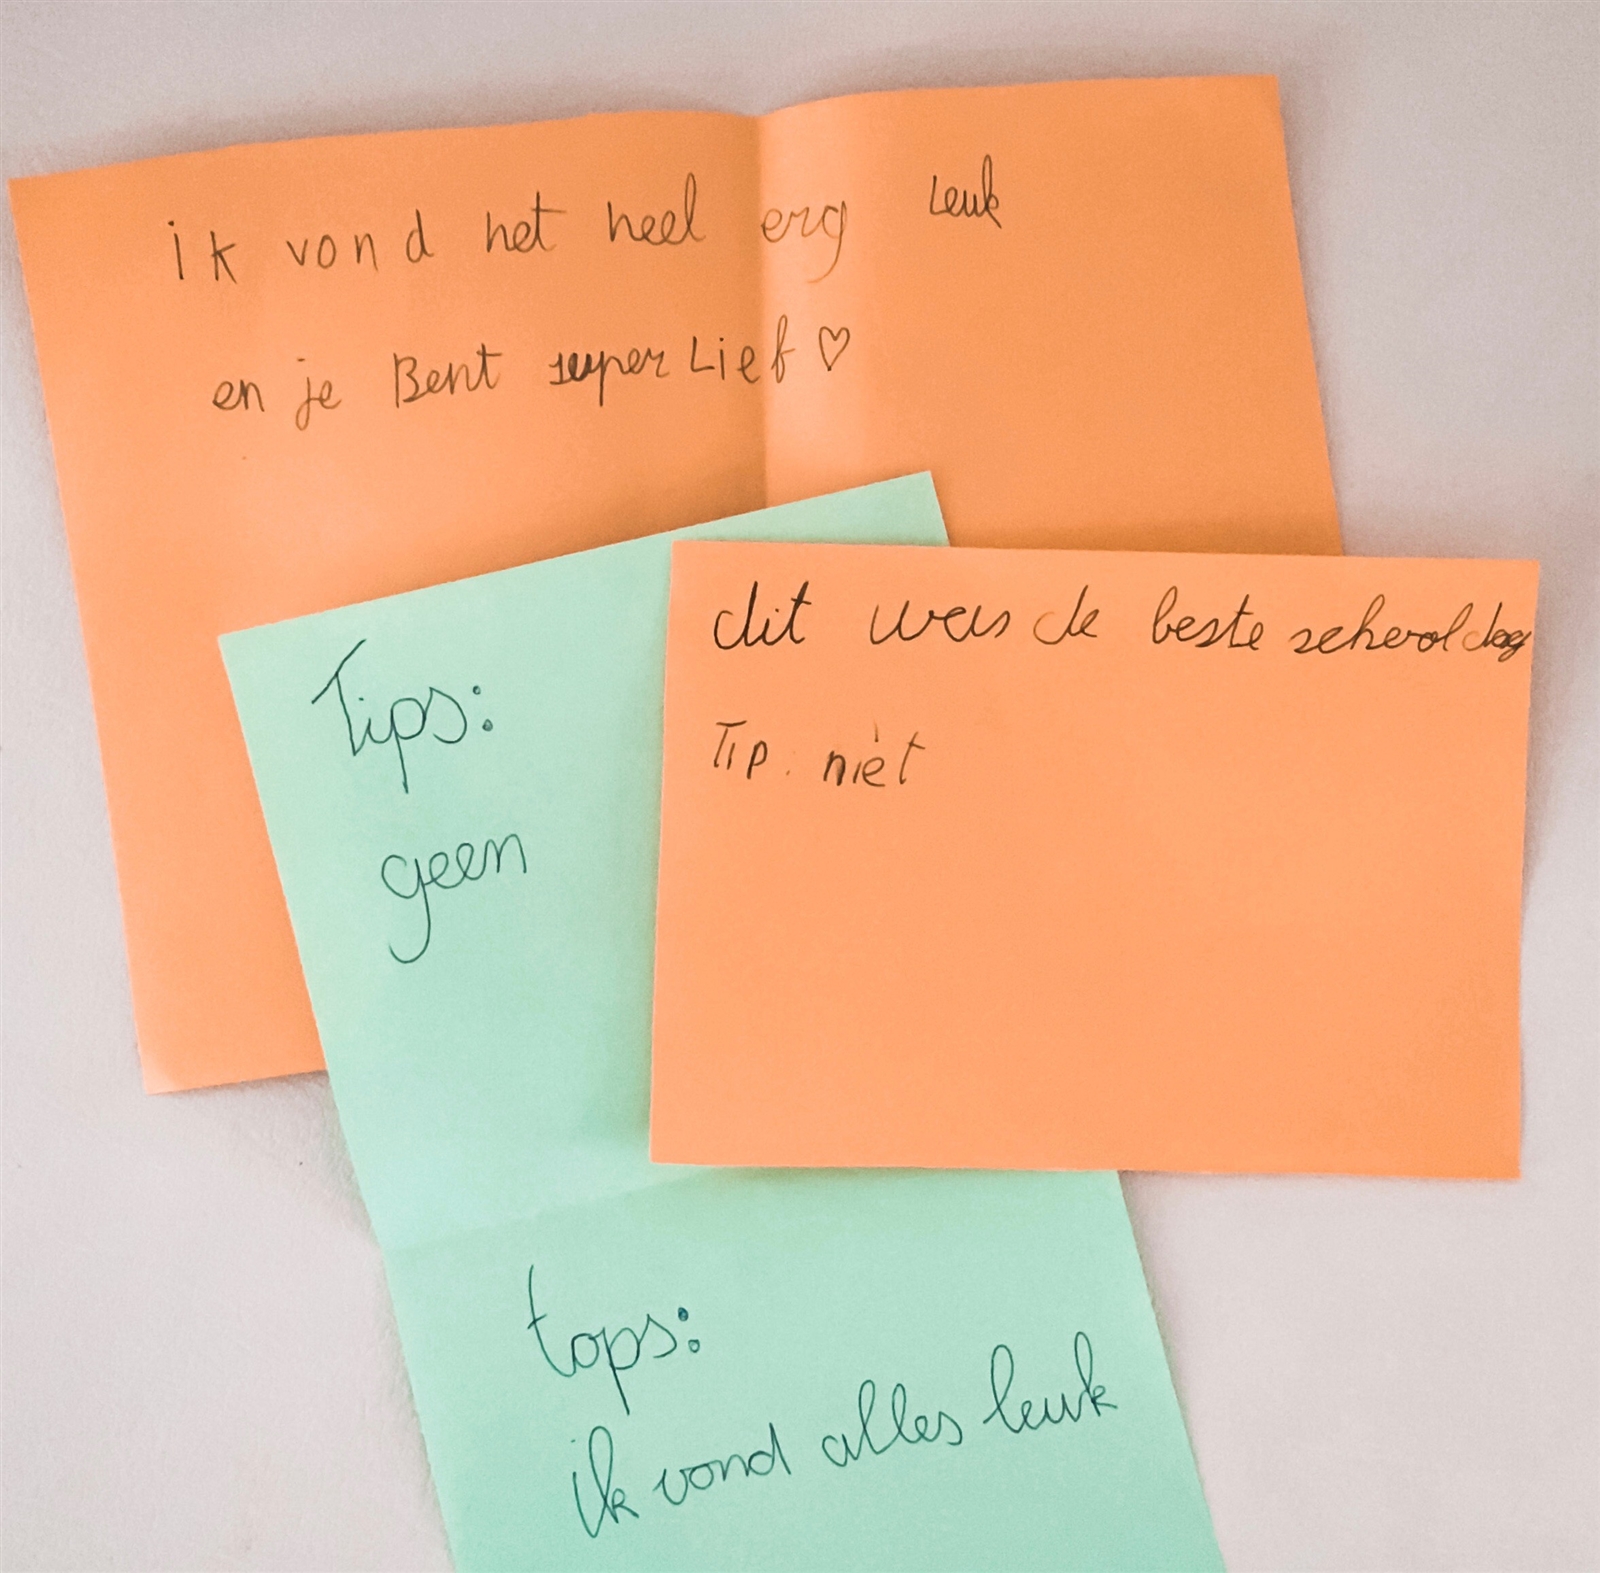 ik vond het heel erg Leuk
en je Bent super Lief ♡
Tips:
geen
dit was de beste schooldag
Tip: niet
tops:
ik vond alles leuk